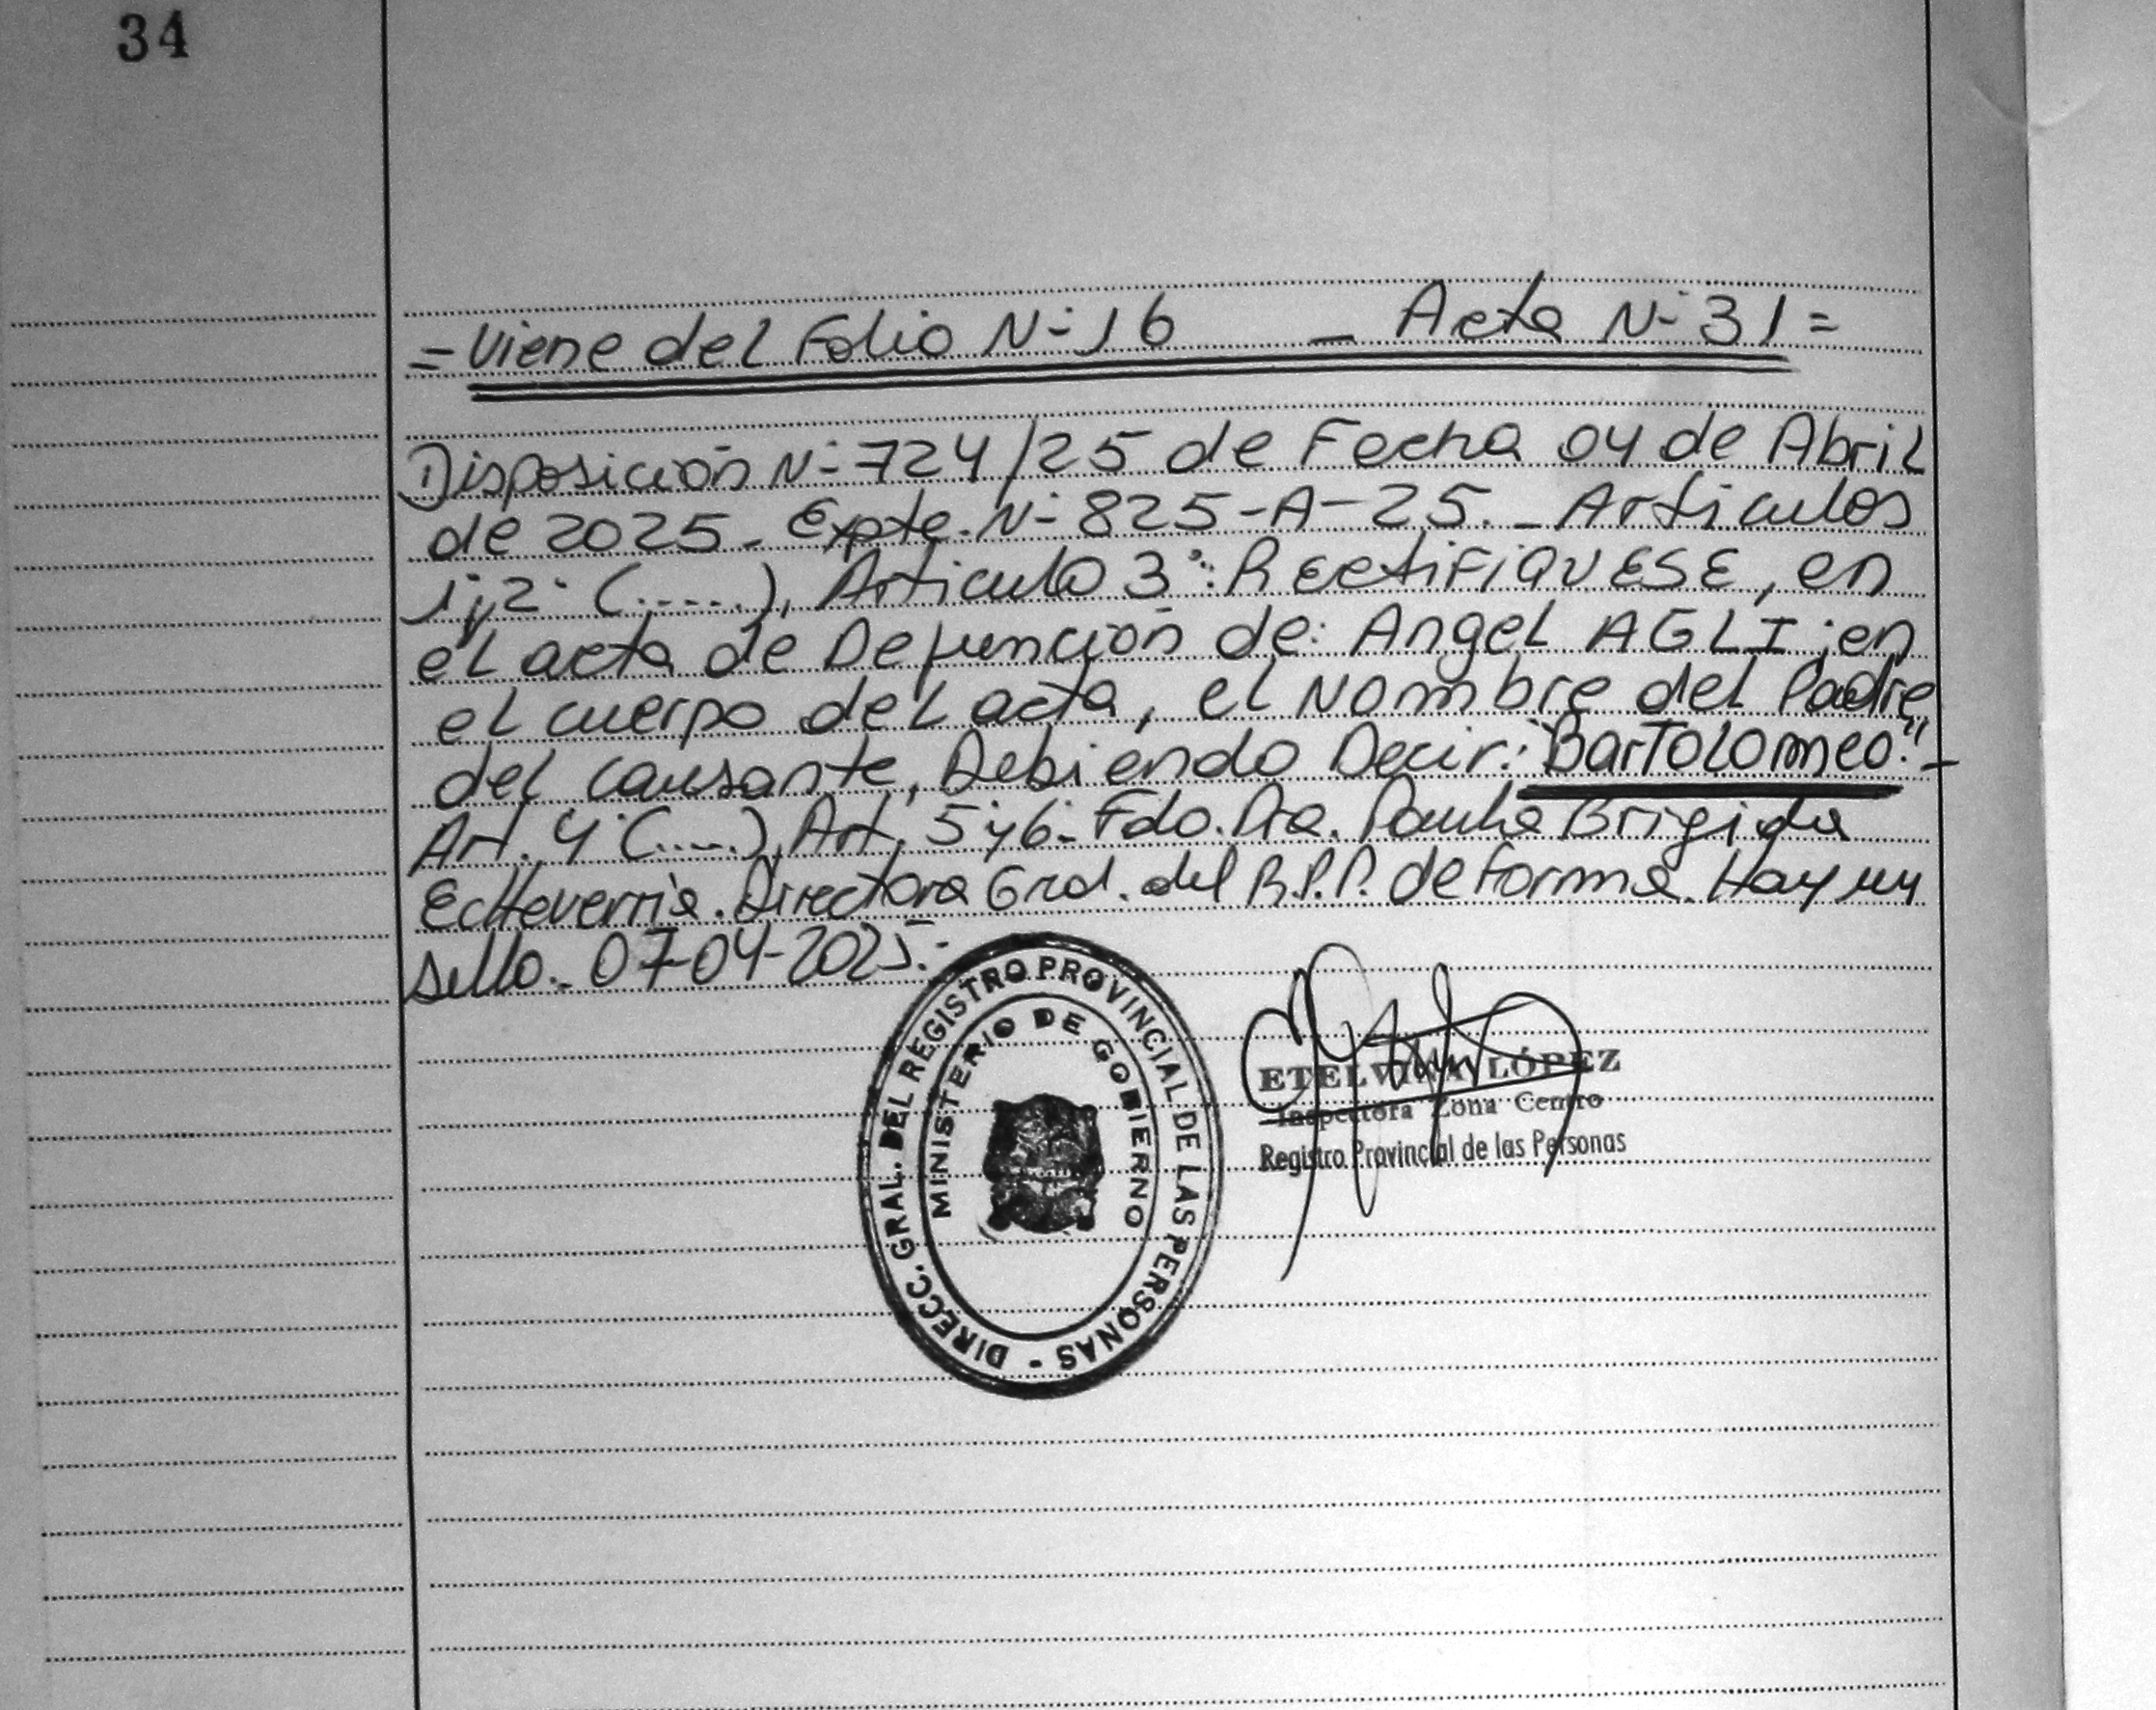 34
= Viene del Folio N° 16 _ Acta N° 31 =
Disposición N° 724/25 de Fecha 04 de Abril
de 2025 - Expte. N° 825-A-25. - Articulos
1 y 2° (.....), Articulo 3°: RECTIFIQUESE, en
el acta de Defunción de: Angel AGLI; en
el cuerpo del acta, el Nombre del Padre
del causante, Debiendo Decir: "BarTOLOMEO." -
Art. 4° (.....), Art. 5 y 6 - Fdo. Dra. Paula Brigida
Echeverria. Directora Gral. del R.P.P. de forma. Hay un
sello. - 07-04-2025. -
DIRECC. GRAL. DEL REGISTRO PROVINCIAL DE LAS PERSONAS -
MINISTERIO DE GOBIERNO
ETELVINA LÓPEZ
Inspectora Zona Centro
Registro Provincial de las Personas